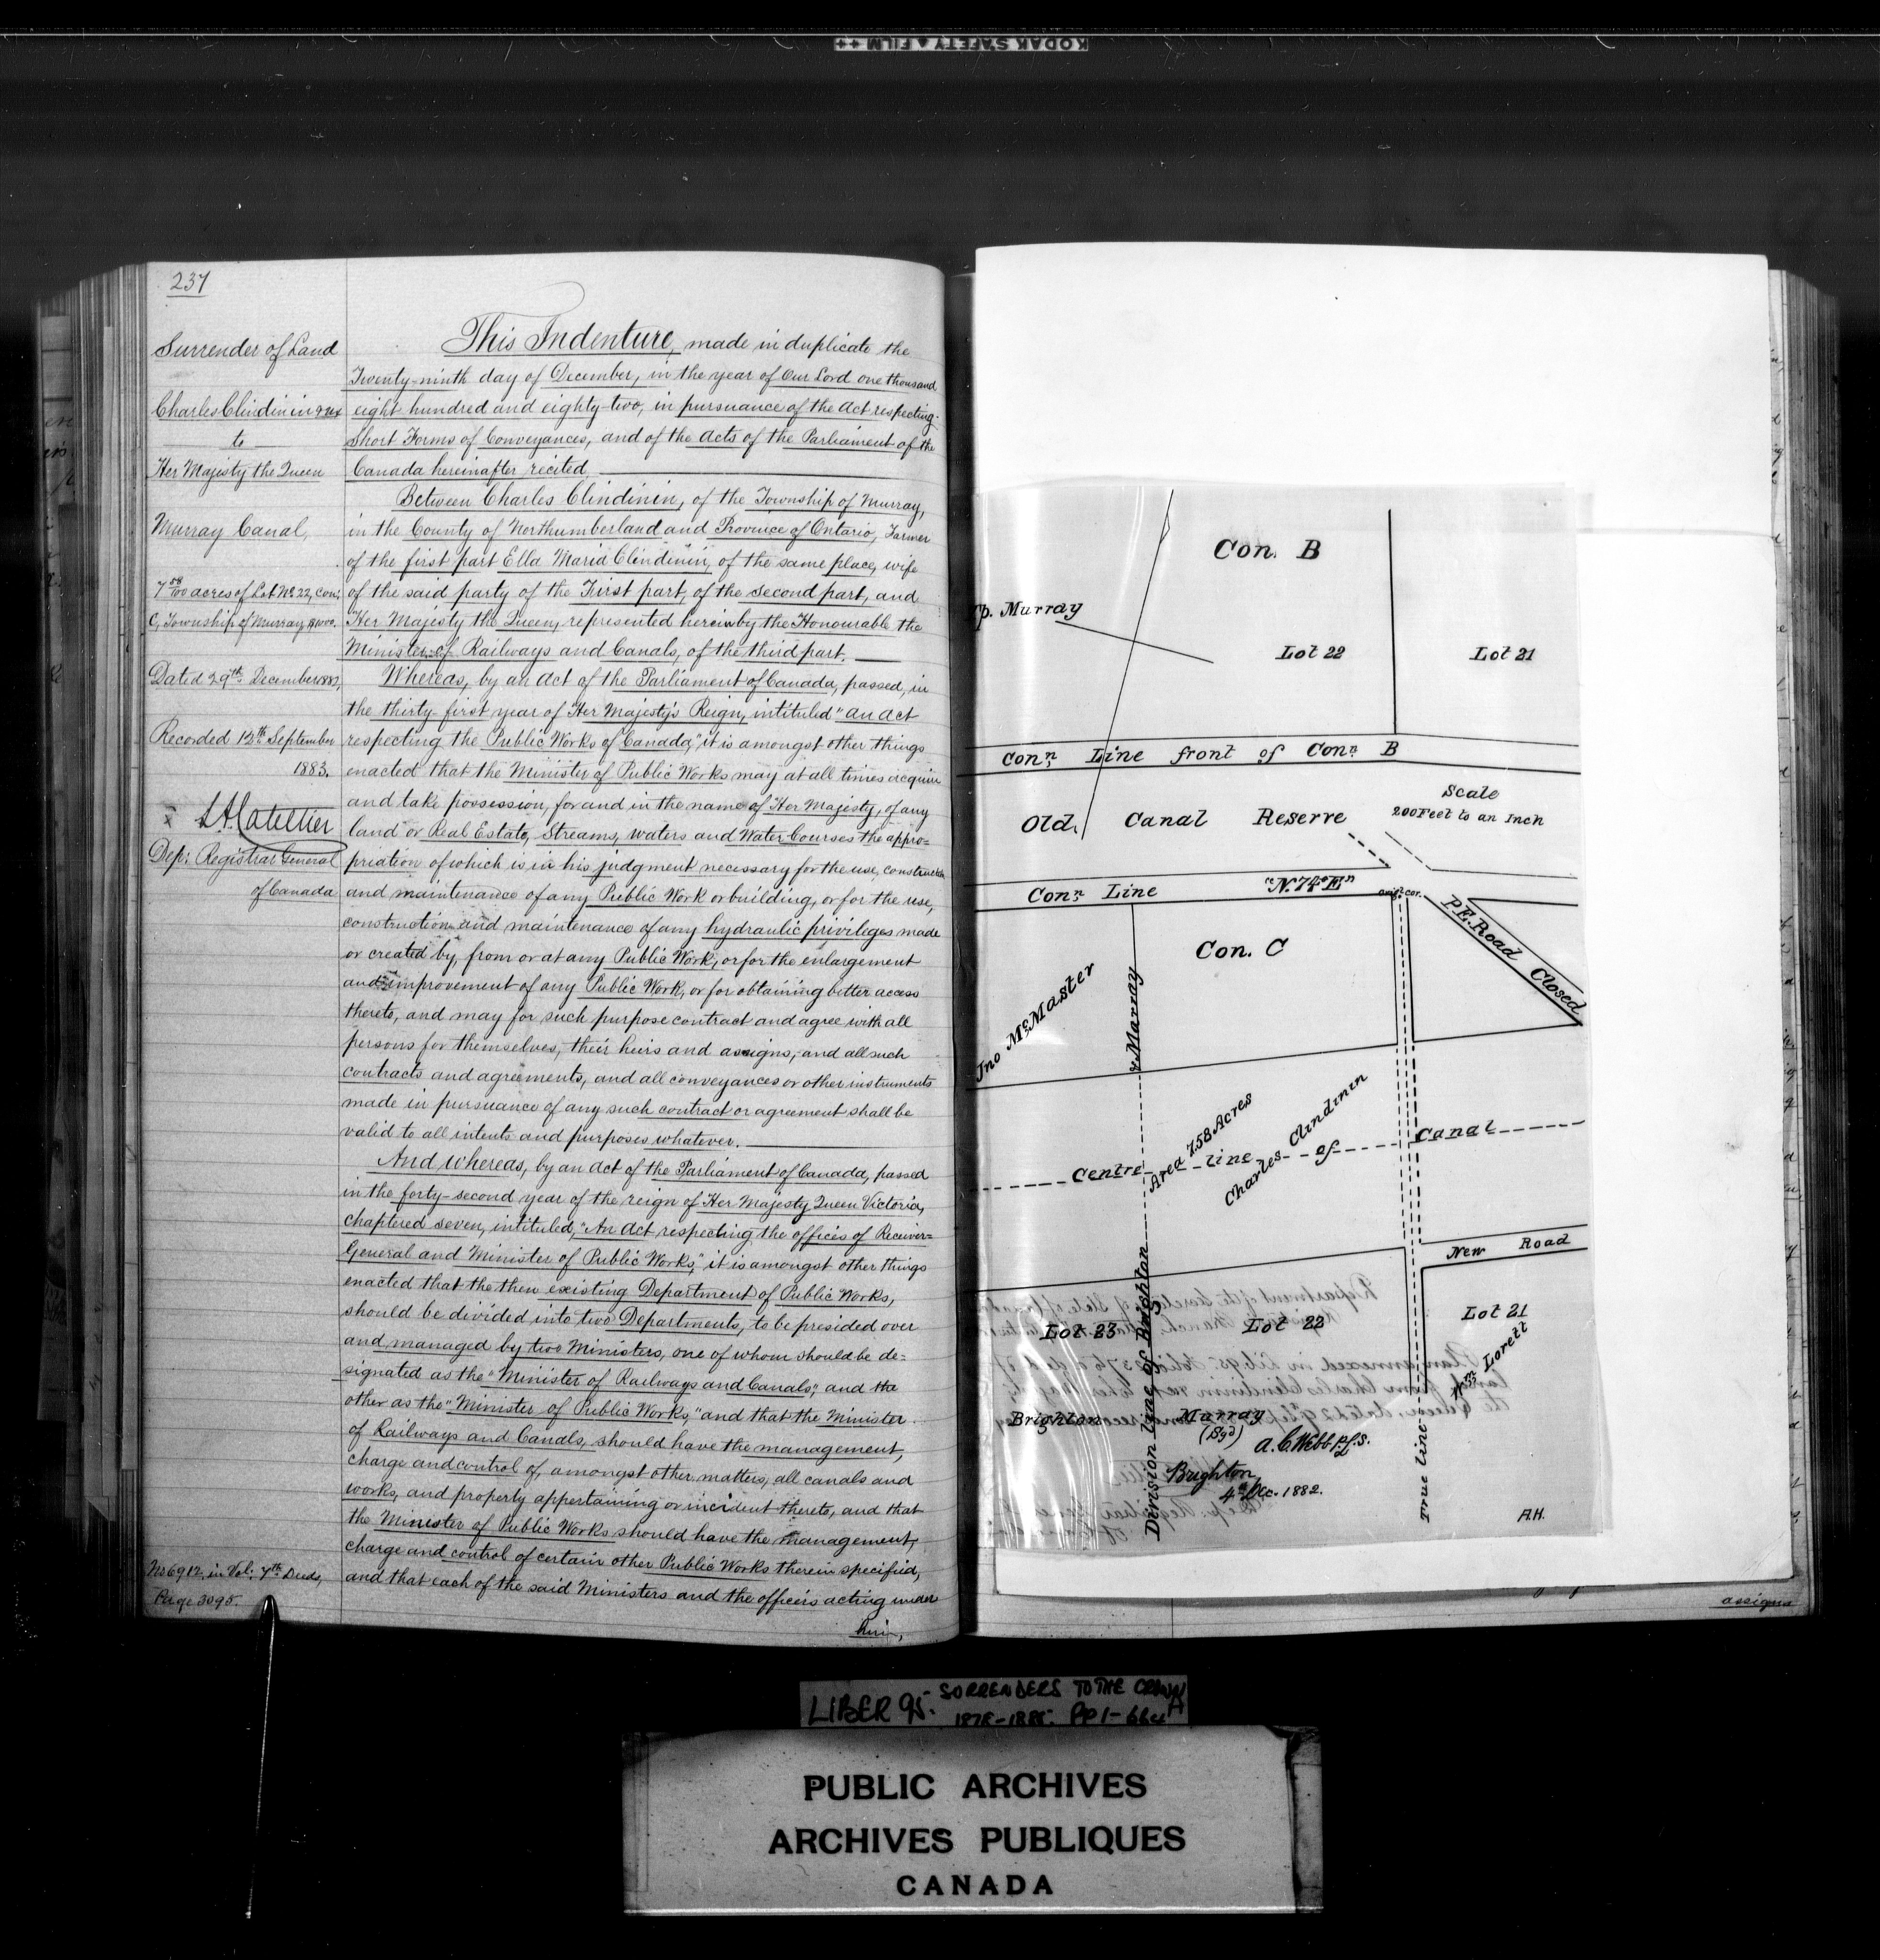 KODAK SAFETY FILM
237
Surrender of Land
Charles Clindinin & ux
to
Her Majesty the Queen
Murray Canal,
7 58/100 acres of Lot No 22, Con;
C, Township of Murray,
Dated 29th December 1882,
Recorded 12th September
1883.
Dep: Registrar General
of Canada
No 6912, in Vol: 7th Deeds,
Page 3095.
This Indenture, made in duplicate the
Twenty-ninth day of December, in the year of Our Lord one thousand
eight hundred and eighty-two, in pursuance of the Act respecting
Short Forms of Conveyances, and of the Acts of the Parliament of the
Canada hereinafter recited
Between Charles Clindinin, of the Township of Murray,
in the County of Northumberland and Province of Ontario, Farmer
of the first part Ella Maria Clindinin, of the same place, wife
of the said party of the First part, of the second part, and
Her Majesty the Queen, represented herein by the Honourable the
Minister of Railways and Canals, of the third part.
Whereas, by an Act of the Parliament of Canada, passed, in
the thirty-first year of Her Majesty's Reign, intituled "An Act
respecting the Public Works of Canada," it is amongst other things
enacted that the Minister of Public Works may at all times acquire
and take possession, for and in the name of Her Majesty, of any
land or Real Estate, Streams, waters and Water Courses the appro=
priation of which is in his judgment necessary for the use, construction
and maintenance of any Public Work or building, or for the use,
construction and maintenance of any hydraulic privileges made
or created by, from or at any Public Work, or for the enlargement
and improvement of any Public Work, or for obtaining better access
thereto, and may for such purpose contract and agree with all
persons for themselves, their heirs and assigns, and all such
contracts and agreements, and all conveyances or other instruments
made in pursuance of any such contract or agreement shall be
valid to all intents and purposes whatever.
And whereas, by an Act of the Parliament of Canada, passed
in the forty-second year of the reign of Her Majesty Queen Victoria,
chaptered seven, intituled, "An Act respecting the offices of Receiver=
General and Minister of Public Works," it is amongst other things
enacted that the then existing Department of Public Works,
should be divided into two Departments, to be presided over
and managed by two Ministers, one of whom should be de=
signated as the "Minister of Railways and Canals," and the
other as the "Minister of Public Works," and that the Minister
of Railways and Canals, should have the management,
charge and control of, amongst other matters, all canals and
works, and property appertaining or incident thereto, and that
the Minister of Public Works should have the management,
charge and control of certain other Public Works therein specified,
and that each of the said Ministers and the officers acting under
him,
Con. B
Tp. Murray
Lot 22
Lot 21
Conn Line front of Conn B
Scale
200 Feet to an Inch
Old. Canal Reserve
Conn Line
"N.74°E"
Orig. cor.
P.E. Road Closed
Con. C
Jno McMaster
& Murray
Area 7.58 Acres
Charles Clindinin
Centre line of Canal
New Road
Division Line of Brighton
Lot 23
Lot 22
Lot 21
Wm Lorett
Brighton
Murray
(Sgd)
A. C. Webb P.L.S.
Brighton
4th Dec. 1882.
True Line
A.H.
assigns
LIBER 95. SURRENDERS TO THE CROWN
PUBLIC ARCHIVES
ARCHIVES PUBLIQUES
CANADA